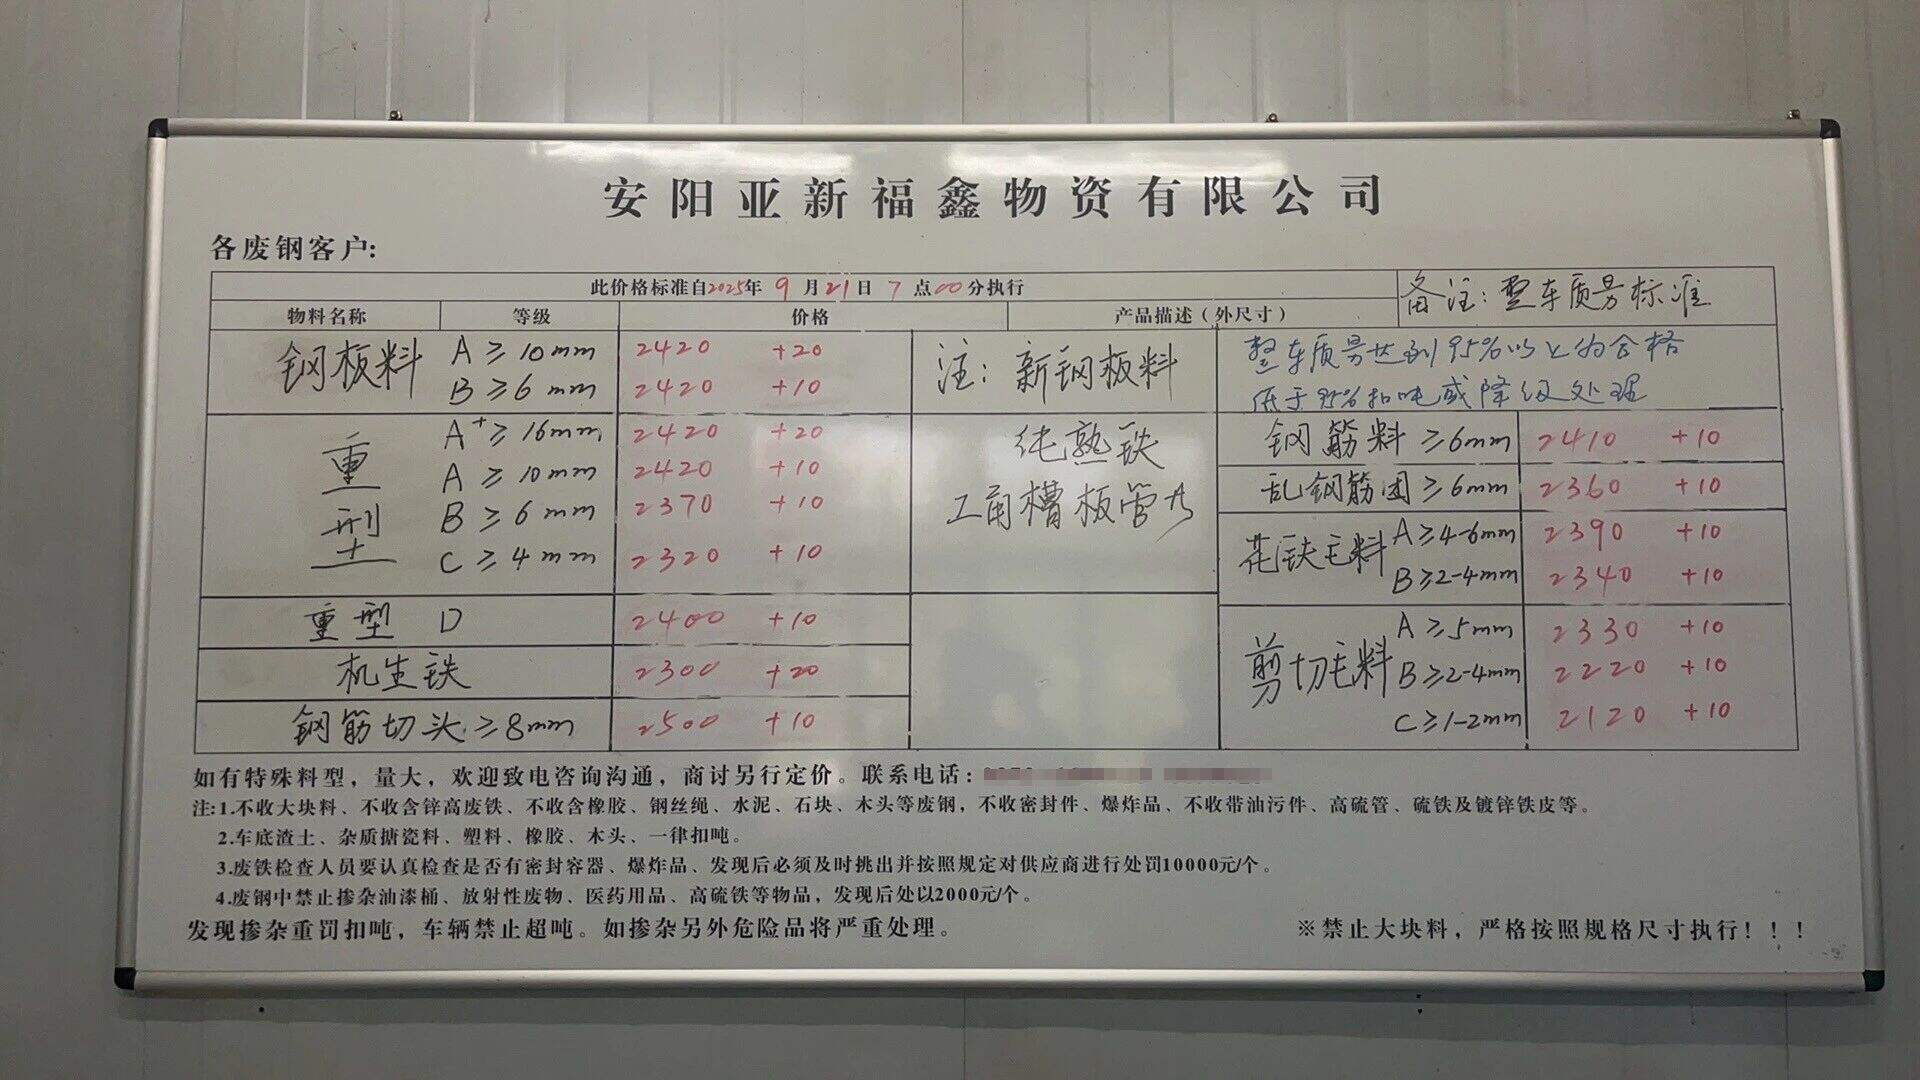 安阳亚新福鑫物资有限公司
各废钢客户:
此价格标准自2025年 9 月21日 7 点00分执行
备注: 型车质另标准
物料名称 等级 价格 产品描述（外尺寸）
钢板料 A ≥ 10mm 2420 +20
B ≥ 6 mm 2420 +10
注: 新钢板料
整车质另达到95%以上为合格
低于95%扣吨或降级处理
重型 A+ ≥ 16mm 2420 +20
A ≥ 10mm 2420 +10
B ≥ 6 mm 2370 +10
C ≥ 4 mm 2320 +10
纯熟铁
工角槽板管
钢筋料 ≥6mm 2410 +10
乱钢筋团 ≥6mm 2360 +10
花铁毛料 A≥4-6mm 2390 +10
B≥2-4mm 2340 +10
重型 D 2400 +10
机生铁 2300 +20
钢筋切头 ≥8mm 2500 +10
剪切毛料 A ≥5mm 2330 +10
B ≥2-4mm 2220 +10
C ≥1-2mm 2120 +10
如有特殊料型，量大，欢迎致电咨询沟通，商讨另行定价。联系电话:
注:1.不收大块料、不收含锌高废铁、不收含橡胶、钢丝绳、水泥、石块、木头等废钢，不收密封件、爆炸品、不收带油污件、高硫管、硫铁及镀锌铁皮等。
2.车底渣土、杂质搪瓷料、塑料、橡胶、木头、一律扣吨。
3.废铁检查人员要认真检查是否有密封容器、爆炸品、发现后必须及时挑出并按照规定对供应商进行处罚10000元/个。
4.废钢中禁止掺杂油漆桶、放射性废物、医药用品、高硫铁等物品，发现后处以2000元/个。
发现掺杂重罚扣吨，车辆禁止超吨。如掺杂另外危险品将严重处理。
※禁止大块料，严格按照规格尺寸执行！！！